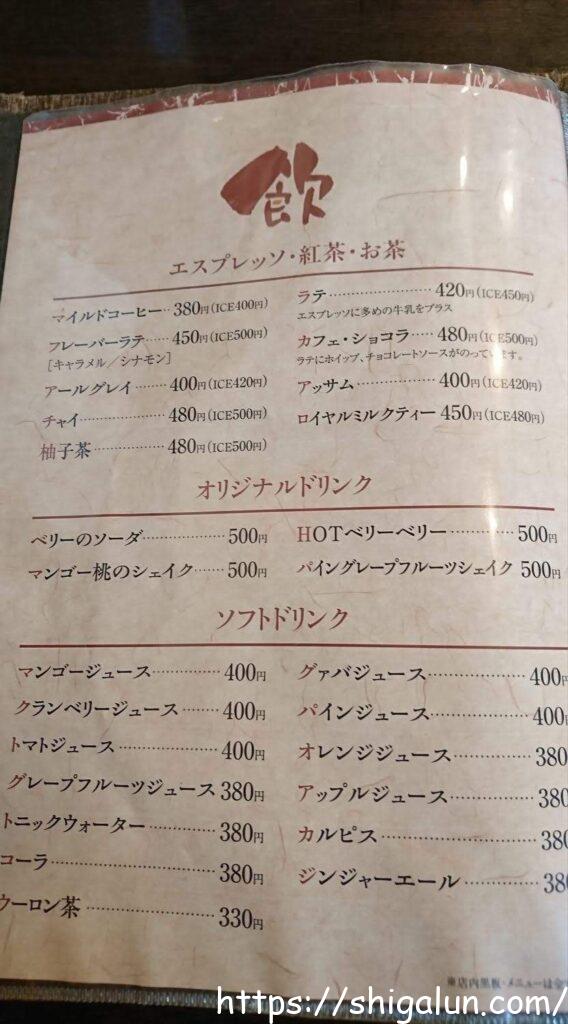 飲
エスプレッソ・紅茶・お茶
マイルドコーヒー‥380円(ICE400円)
フレーバーラテ……450円(ICE500円)
[キャラメル／シナモン]
アールグレイ……400円(ICE420円)
チャイ………………480円(ICE500円)
柚子茶………………480円(ICE500円)
ラテ………………………420円(ICE450円)
エスプレッソに多めの牛乳をプラス
カフェ・ショコラ……480円(ICE500円)
ラテにホイップ、チョコレートソースがのっています。
アッサム………………400円(ICE420円)
ロイヤルミルクティー 450円(ICE480円)
オリジナルドリンク
ベリーのソーダ………………500円
マンゴー桃のシェイク……500円
HOTベリーベリー…………500円
パイングレープフルーツシェイク 500円
ソフトドリンク
マンゴージュース…………400円
クランベリージュース……400円
トマトジュース………………400円
グレープフルーツジュース 380円
トニックウォーター…………380円
コーラ……………………………380円
ウーロン茶……………………330円
グァバジュース………………400円
パインジュース………………400
オレンジジュース……………380
アップルジュース……………380
カルピス………………………380
ジンジャーエール……………380
※店内黒板・メニューは
https://shigalun.com/